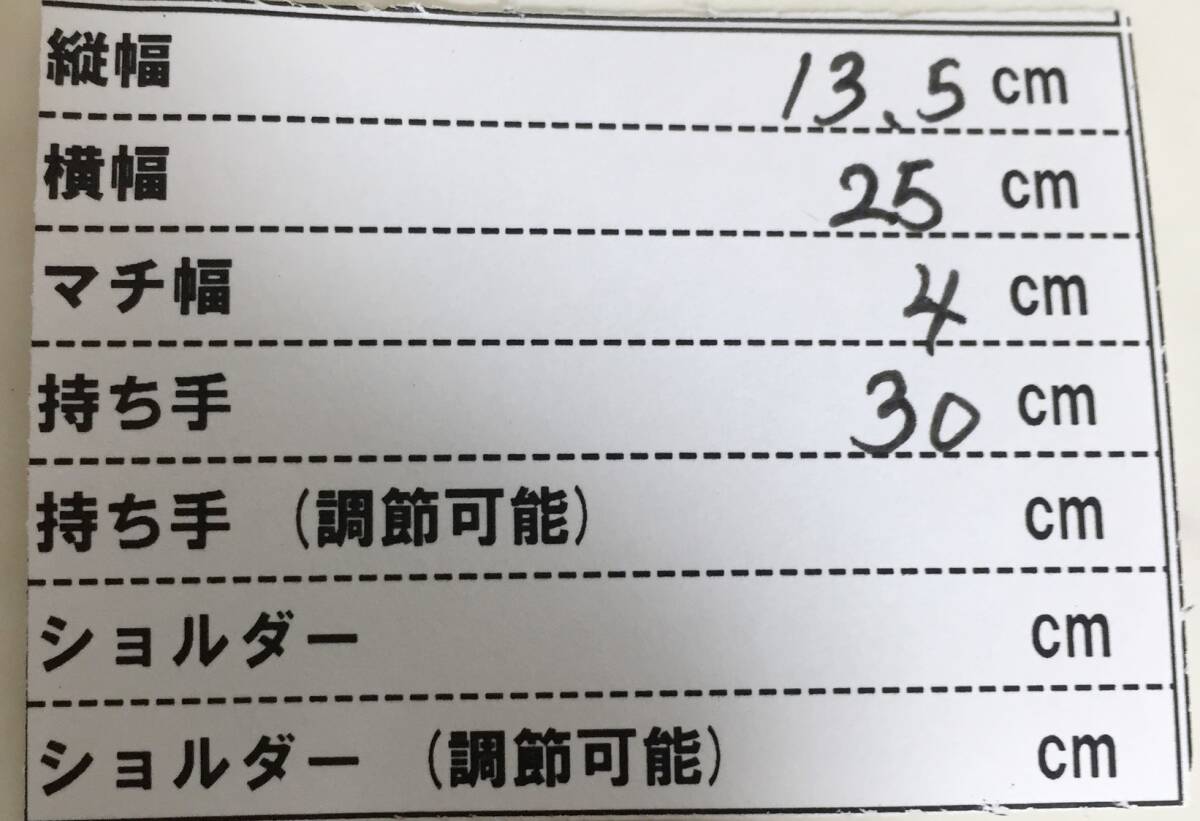 縦幅 13.5 cm
横幅 25 cm
マチ幅 4 cm
持ち手 30 cm
持ち手 (調節可能) cm
ショルダー cm
ショルダー (調節可能) cm